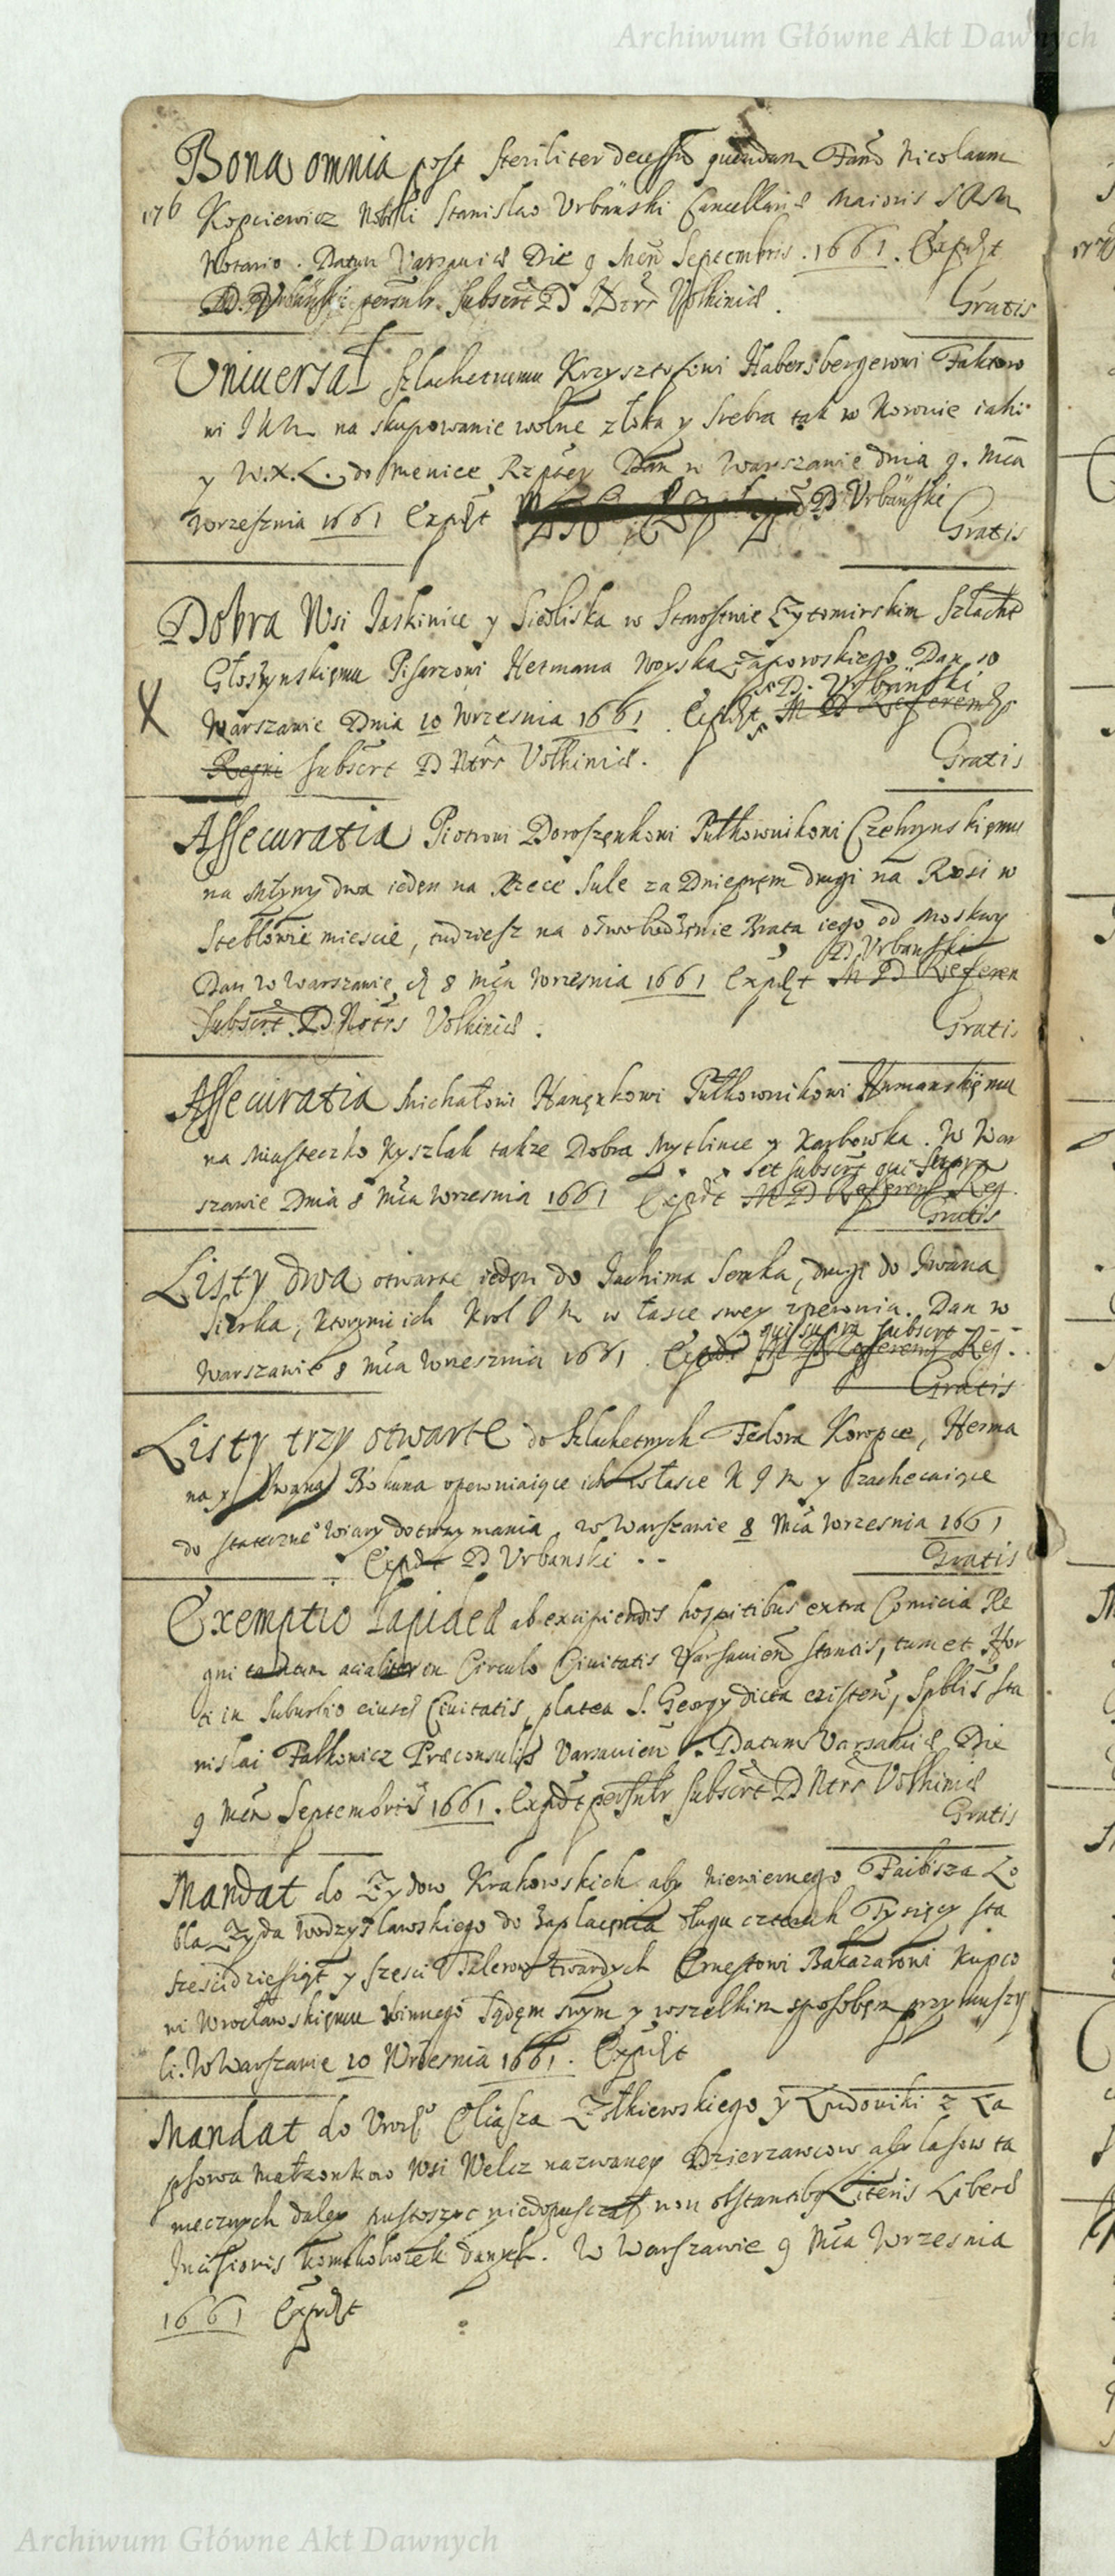 Archiwum Główne Akt Dawnych
Bona omnia post steriliter decessũ quendam Famũ Nicolaum
176 Kopciewicz Nobili Stanislao Urbański Cancellariæ Maioris SRM
Notario. Datum Varsaviæ Die 9 Men Septembris. 1661. Expdt
D. Urbański Subscrt D Ntrs Volhiniæ.
Gratis
Uniuersał Szlachetnemu Krzysztofowi Habersbergerowi Faktoro
wi JKM na skupowanie wolne złota y srebra tak w Koronie iako
y W.X.L. do Menice Rzptey Dan w Warszawie dnia 9. Mca
Wrzesznia 1661 Expdt D Urbański
Gratis
Dobra Wsi Iaskinice y Siedliska w Starostwie Zytomirskim Szlache
Głoszynskiemu Pisarzowi Hetmana Woyska Zaporowskiego Dan w
D. Urbański
X Warszawie Dnia 10 Wrzesnia 1661. Expdt M D Referendr
Regni Subscrt D Ntrs Volhiniæ.
Gratis
Assecuratia Piotrowi Doroszęnkowi Pułkownikowi Czehrynskiemu
na Młyny dwa ieden na Rzece Sule za Dnieprem drugi na Rosi w
Steblowie miescie, tudziesz na oswobodzenie Brata iego od Moskwy
D. Urbański
Dan w Warszawie d 8 Mca Wrzesnia 1661 Expdt M D Referen
Subscrt D Notrs Volhiniæ.
Gratis
Assecuratia Michałowi Hanęnkowi Pułkownikowi Humanskiemu
na Miasteczko Kyszlak takze Dobra Mytlince y Karbowka. W War
et subscrt qui supra
szawie Dnia 8 Mca Wrzesnia 1661 Expdt M D Referend Reg.
Gratis
Listy dwa otwarte ieden do Jachima Somka, drugi do Iwana
Sierka, ktorymi ich Krol J M w łasce swey vpewnia. Dan w
qui supra subscrt
Warszawie 8 Mca Wrzesznia 1661. Expdt M D Referend Reg.
Gratis
Listy trzy otwarte do Szlachetnych Fedora Koropce, Herma
na y Iwana Bohuna vpewniaiące ich w łasce K J M y zachecaiące
do stateczney Wiary dotrzymania, w Warszawie 8 Mca Wrzesnia 1661
Expdt D Urbanski
Gratis
Exemptio Lapideæ ab excipiendis hospitibus extra Comicia Re
gni in Circulo Civitatis Varsavien stantis, tum et Hor
ti in Suburbio eiusd Civitatis, platea S. Georgy dicta existen, Spblis Sta
nislai Falkowicz Præconsulis Varsavien. Datum Varsaviæ Die
9 Men Septembris 1661. Expdt Subscrt D Ntrs Volhiniæ
Gratis
Mandat do Zydow Krakowskich aby niewiernego Faibisza Lo
bla Zyda Wodzysławskiego do zapłacenia długu czterech Tysięcy sta
szescidziesiąt y szesci Talerow twardych Ernestowi Bakazarowi Kupco
wi Wrocławskiemu winnego sądem swym y wszelkim sposobem przymuszy
li. W Warszawie 10 Wrzesnia 1661. Expdt
Mandat do Urodzo Eliasza Zołkiewskiego y Ludowiki z Ła
psowa Małzonkow Wsi Welcz nazwaney Dzierzawcow aby lasow ta
mecznych daley pustoszyc niedopuszczali non obstantibq Literis Liberæ
Incisionis danych. W Warszawie 9 Mca Wrzesnia
1661 Expdt
Archiwum Główne Akt Dawnych